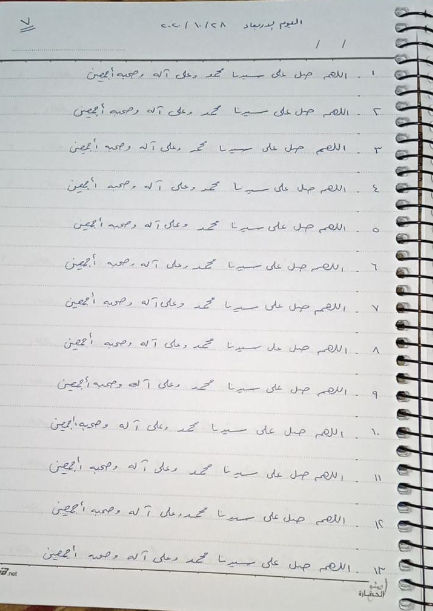 اليوم الاربعاء ٢٠٢٠/١٠/٢٨
٧
/ /
١. اللهم صل على سيدنا محمد وعلى آله وصحبه أجمعين
٢. اللهم صل على سيدنا محمد وعلى آله وصحبه أجمعين
٣. اللهم صل على سيدنا محمد وعلى آله وصحبه أجمعين
٤. اللهم صل على سيدنا محمد وعلى آله وصحبه أجمعين
٥. اللهم صل على سيدنا محمد وعلى آله وصحبه أجمعين
٦. اللهم صل على سيدنا محمد وعلى آله وصحبه أجمعين
٧. اللهم صل على سيدنا محمد وعلى آله وصحبه أجمعين
٨. اللهم صل على سيدنا محمد وعلى آله وصحبه أجمعين
٩. اللهم صل على سيدنا محمد وعلى آله وصحبه أجمعين
١٠. اللهم صل على سيدنا محمد وعلى آله وصحبه اجمعين
١١. اللهم صل على سيدنا محمد وعلى آله وصحبه أجمعين
١٢. اللهم صل على سيدنا محمد وعلى آله وصحبه أجمعين
١٣. اللهم صل على سيدنا محمد وعلى آله وصحبه أجمعين
الحضارة
.net